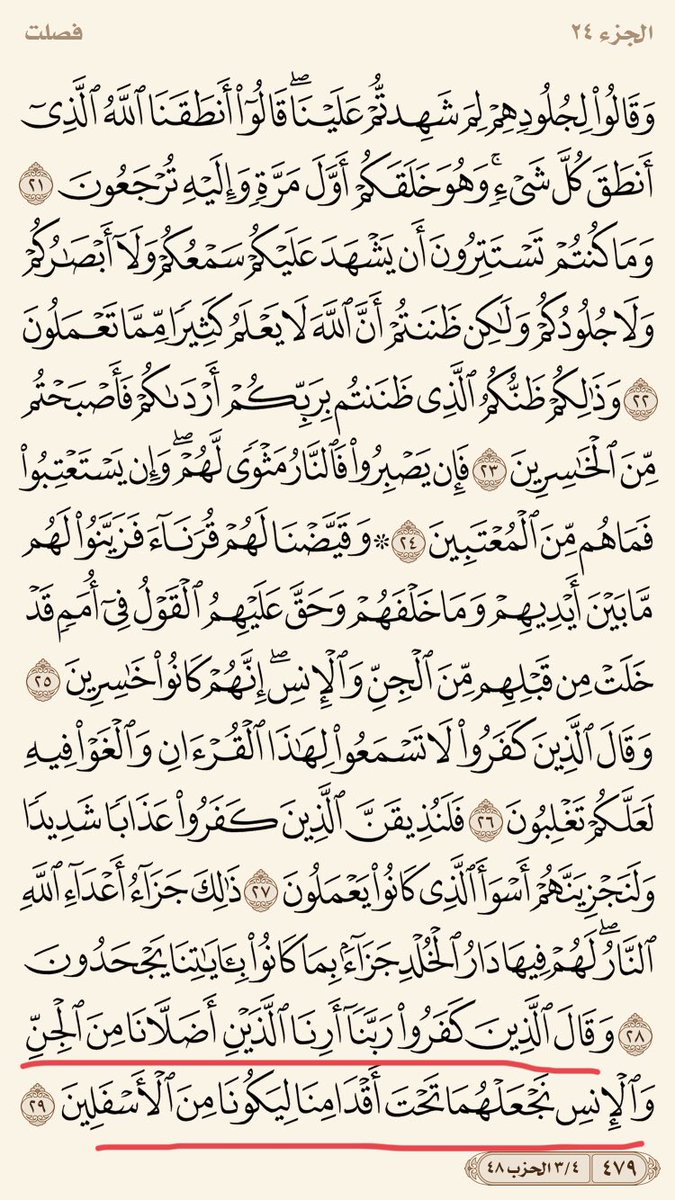 الجزء ٢٤ فصلت
وَقَالُوا۟ لِجُلُودِهِمْ لِمَ شَهِدتُّمْ عَلَيْنَا ۖ قَالُوٓا۟ أَنطَقَنَا ٱللَّهُ ٱلَّذِىٓ
أَنطَقَ كُلَّ شَىْءٍ ۚ وَهُوَ خَلَقَكُمْ أَوَّلَ مَرَّةٍ وَإِلَيْهِ تُرْجَعُونَ ٢١
وَمَا كُنتُمْ تَسْتَتِرُونَ أَن يَشْهَدَ عَلَيْكُمْ سَمْعُكُمْ وَلَآ أَبْصَٰرُكُمْ
وَلَا جُلُودُكُمْ وَلَٰكِن ظَنَنتُمْ أَنَّ ٱللَّهَ لَا يَعْلَمُ كَثِيرًا مِّمَّا تَعْمَلُونَ
٢٢ وَذَٰلِكُمْ ظَنُّكُمُ ٱلَّذِى ظَنَنتُم بِرَبِّكُمْ أَرْدَىٰكُمْ فَأَصْبَحْتُم
مِّنَ ٱلْخَٰسِرِينَ ٢٣ فَإِن يَصْبِرُوا۟ فَٱلنَّارُ مَثْوًى لَّهُمْ ۖ وَإِن يَسْتَعْتِبُوا۟
فَمَا هُم مِّنَ ٱلْمُعْتَبِينَ ٢٤ ۞ وَقَيَّضْنَا لَهُمْ قُرَنَآءَ فَزَيَّنُوا۟ لَهُم
مَّا بَيْنَ أَيْدِيهِمْ وَمَا خَلْفَهُمْ وَحَقَّ عَلَيْهِمُ ٱلْقَوْلُ فِىٓ أُمَمٍ قَدْ
خَلَتْ مِن قَبْلِهِم مِّنَ ٱلْجِنِّ وَٱلْإِنسِ ۖ إِنَّهُمْ كَانُوا۟ خَٰسِرِينَ ٢٥
وَقَالَ ٱلَّذِينَ كَفَرُوا۟ لَا تَسْمَعُوا۟ لِهَٰذَا ٱلْقُرْءَانِ وَٱلْغَوْا۟ فِيهِ
لَعَلَّكُمْ تَغْلِبُونَ ٢٦ فَلَنُذِيقَنَّ ٱلَّذِينَ كَفَرُوا۟ عَذَابًا شَدِيدًا
وَلَنَجْزِيَنَّهُمْ أَسْوَأَ ٱلَّذِى كَانُوا۟ يَعْمَلُونَ ٢٧ ذَٰلِكَ جَزَآءُ أَعْدَآءِ ٱللَّهِ
ٱلنَّارُ ۖ لَهُمْ فِيهَا دَارُ ٱلْخُلْدِ ۖ جَزَآءًۢ بِمَا كَانُوا۟ بِـَٔايَٰتِنَا يَجْحَدُونَ
٢٨ وَقَالَ ٱلَّذِينَ كَفَرُوا۟ رَبَّنَآ أَرِنَا ٱلَّذَيْنِ أَضَلَّانَا مِنَ ٱلْجِنِّ
وَٱلْإِنسِ نَجْعَلْهُمَا تَحْتَ أَقْدَامِنَا لِيَكُونَا مِنَ ٱلْأَسْفَلِينَ ٢٩
٤٧٩ ٣/٤ الحزب ٤٨